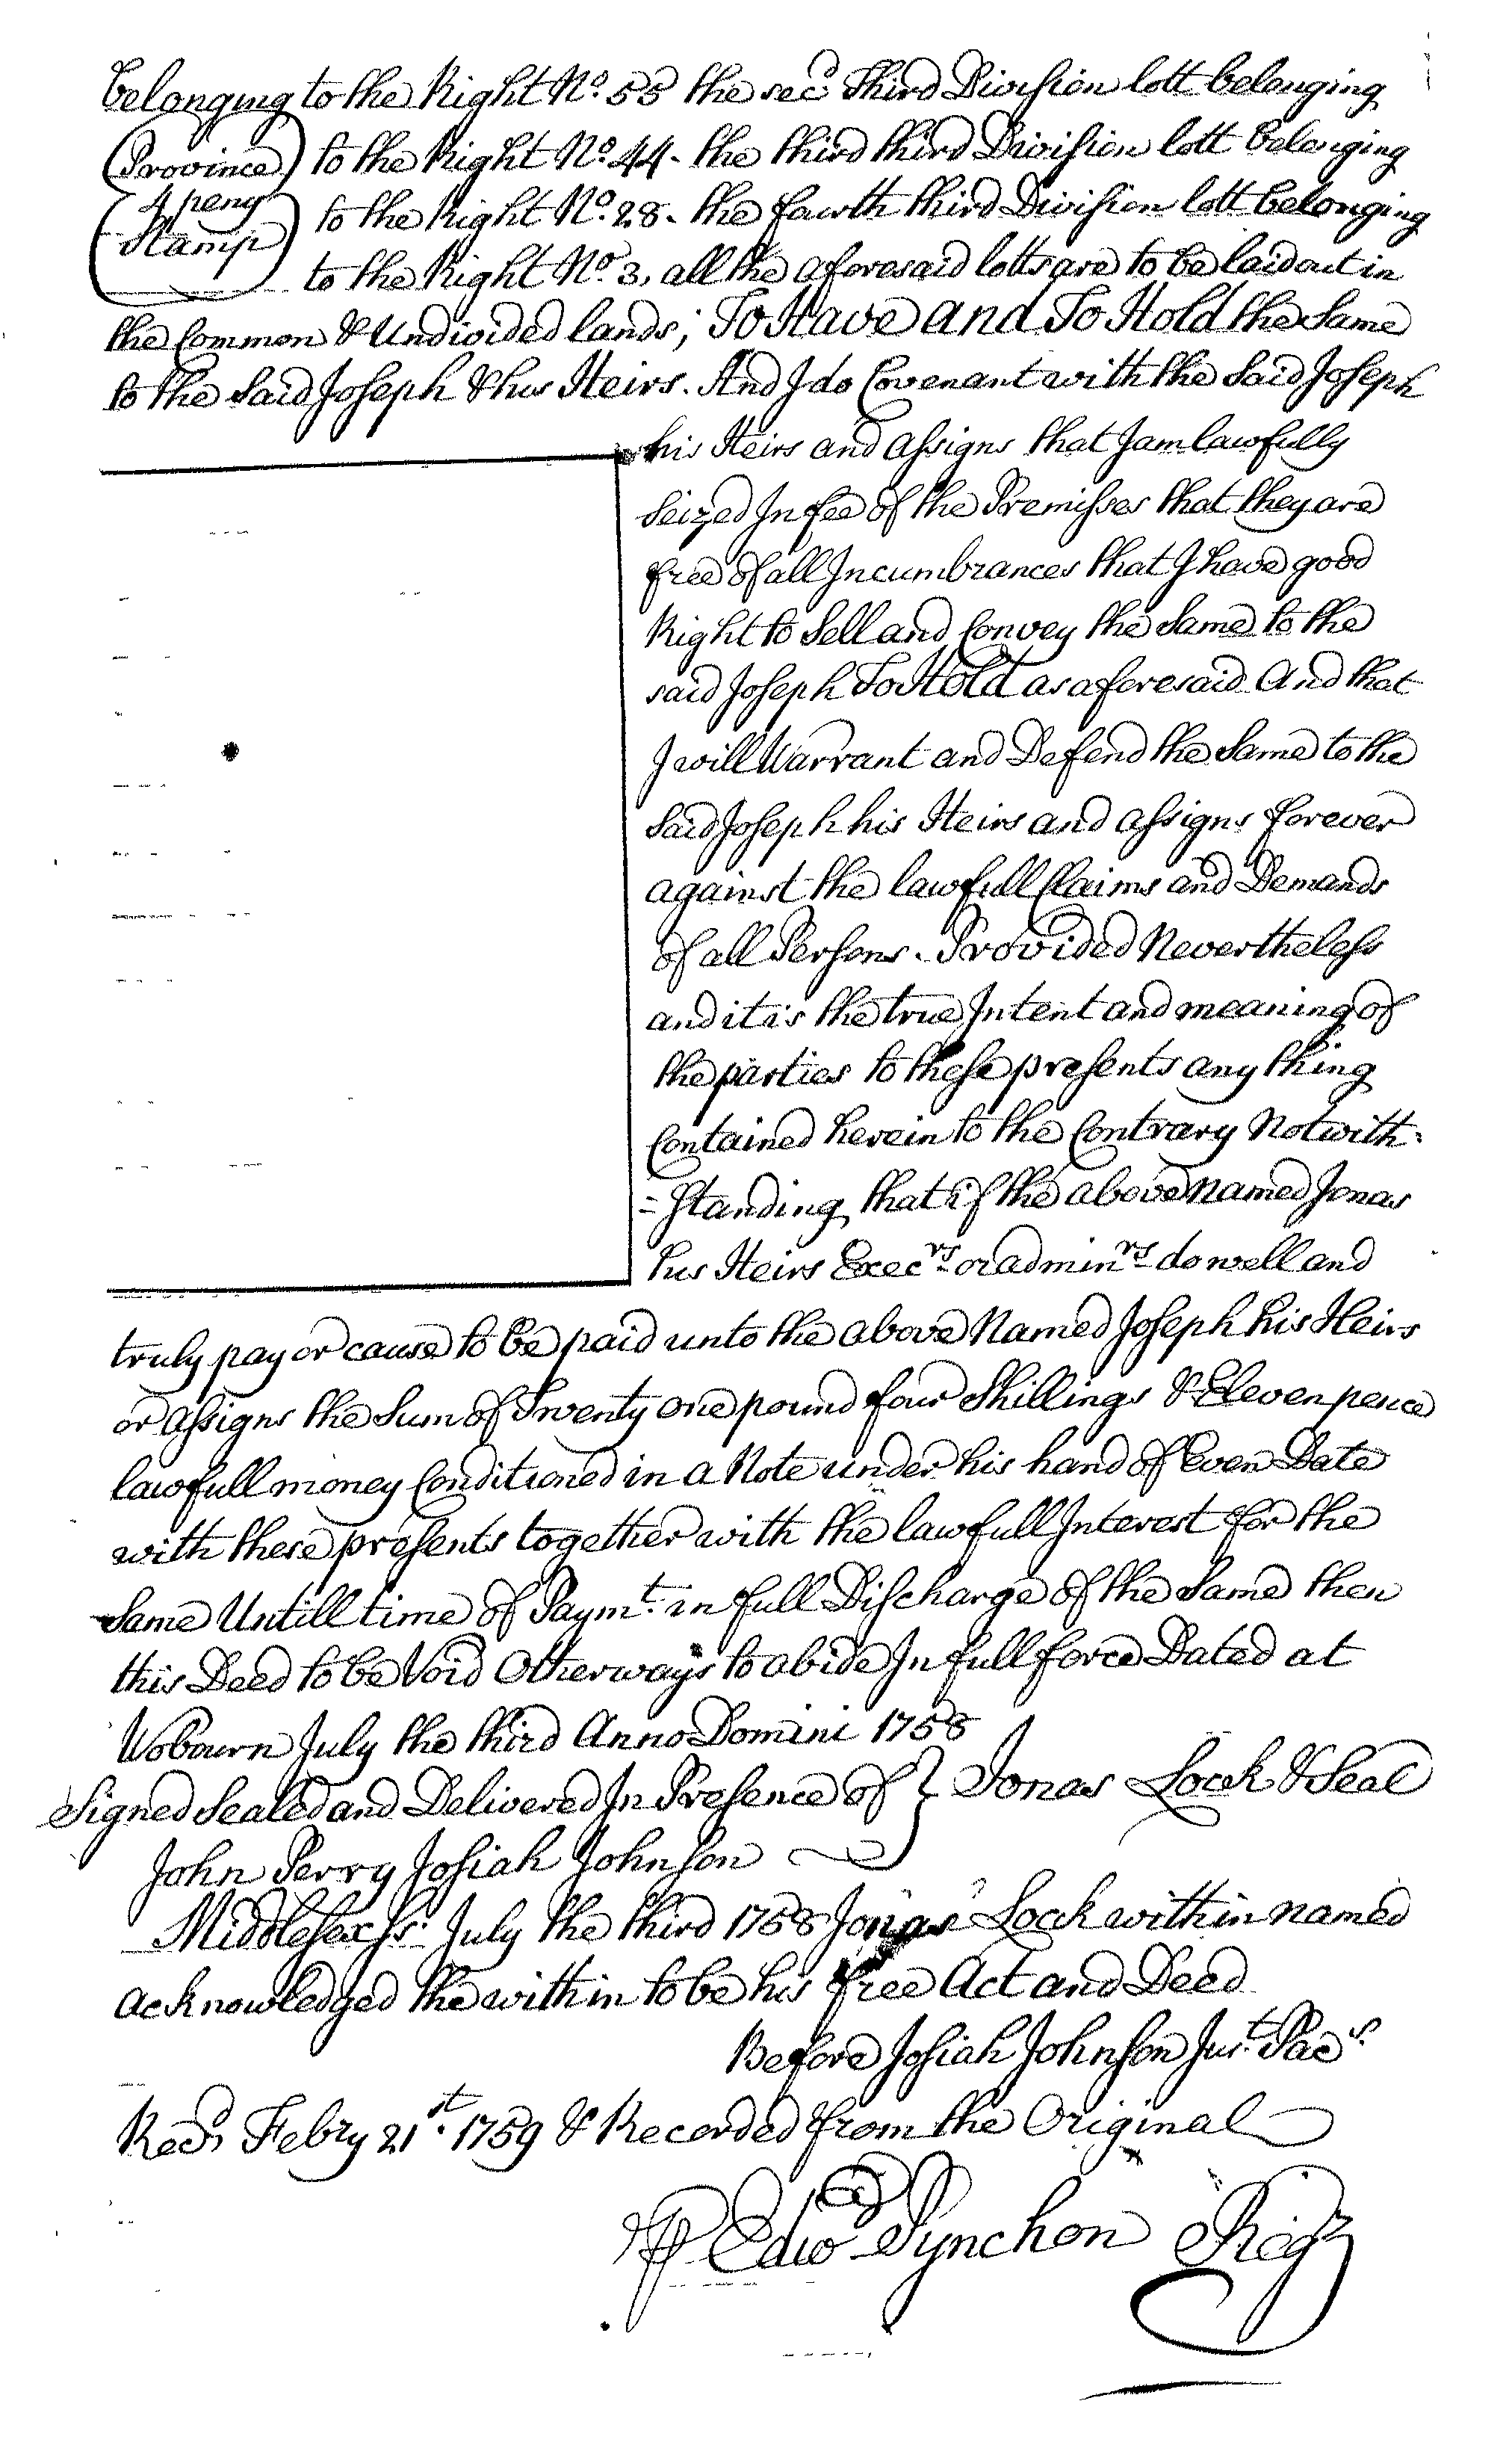 belonging to the Right No. 55 the secd. third Division lott belonging
(Province) to the Right No. 44. the third third Division lott belonging
(4 peny to the Right No. 28. the fawth third Division lott belonging
Stamp) to the Right No. 3, all the aforesaid lotts are to be laid out in
the Common & Undivided lands; To Have and To Hold the Same
to the Said Joseph & his Heirs. And I do Covenant with the Said Joseph
his Heirs and assigns that I am lawfully
Seized In fee of the Premisses that they are
free of all Incumbrances that I have good
Right to Sell and Convey the Same to the
said Joseph To Hold as aforesaid And that
I will Warrant and Defend the Same to the
Said Joseph his Heirs and assigns forever
against the lawfull Claims and Demands
of all Persons. Provided Nevertheless
and it is the true Intent and meaning of
the parties to these presents any thing
Contained herein to the Contrary Notwith=
=standing that if the above named Jonas
his Heirs Execrs. or adminrs. do well and
truly pay or cause to be paid unto the above Named Joseph his Heirs
or assigns the Sum of Twenty one pound four Shillings & Eleven pence
lawfull money Conditioned in a Note under his hand of Even Date
with these presents together with the lawfull Interest for the
Same Untill time of Paymt. in full Discharge of the Same then
this Deed to be Void Otherways to abide In full force Dated at
Wobourn July the third Anno Domini 1758
Signed Sealed and Delivered In Presence of } Jonas Lock & Seal
John Perry Josiah Johnson
Middlesex ss. July the third 1758 Jonas Lock within named
acknowledged the within to be his free Act and Deed
Before Josiah Johnson Just. Pacs.
Recd. Febry 21st. 1759 & Recorded from the Original
⅌ Edwd Pynchon Regr